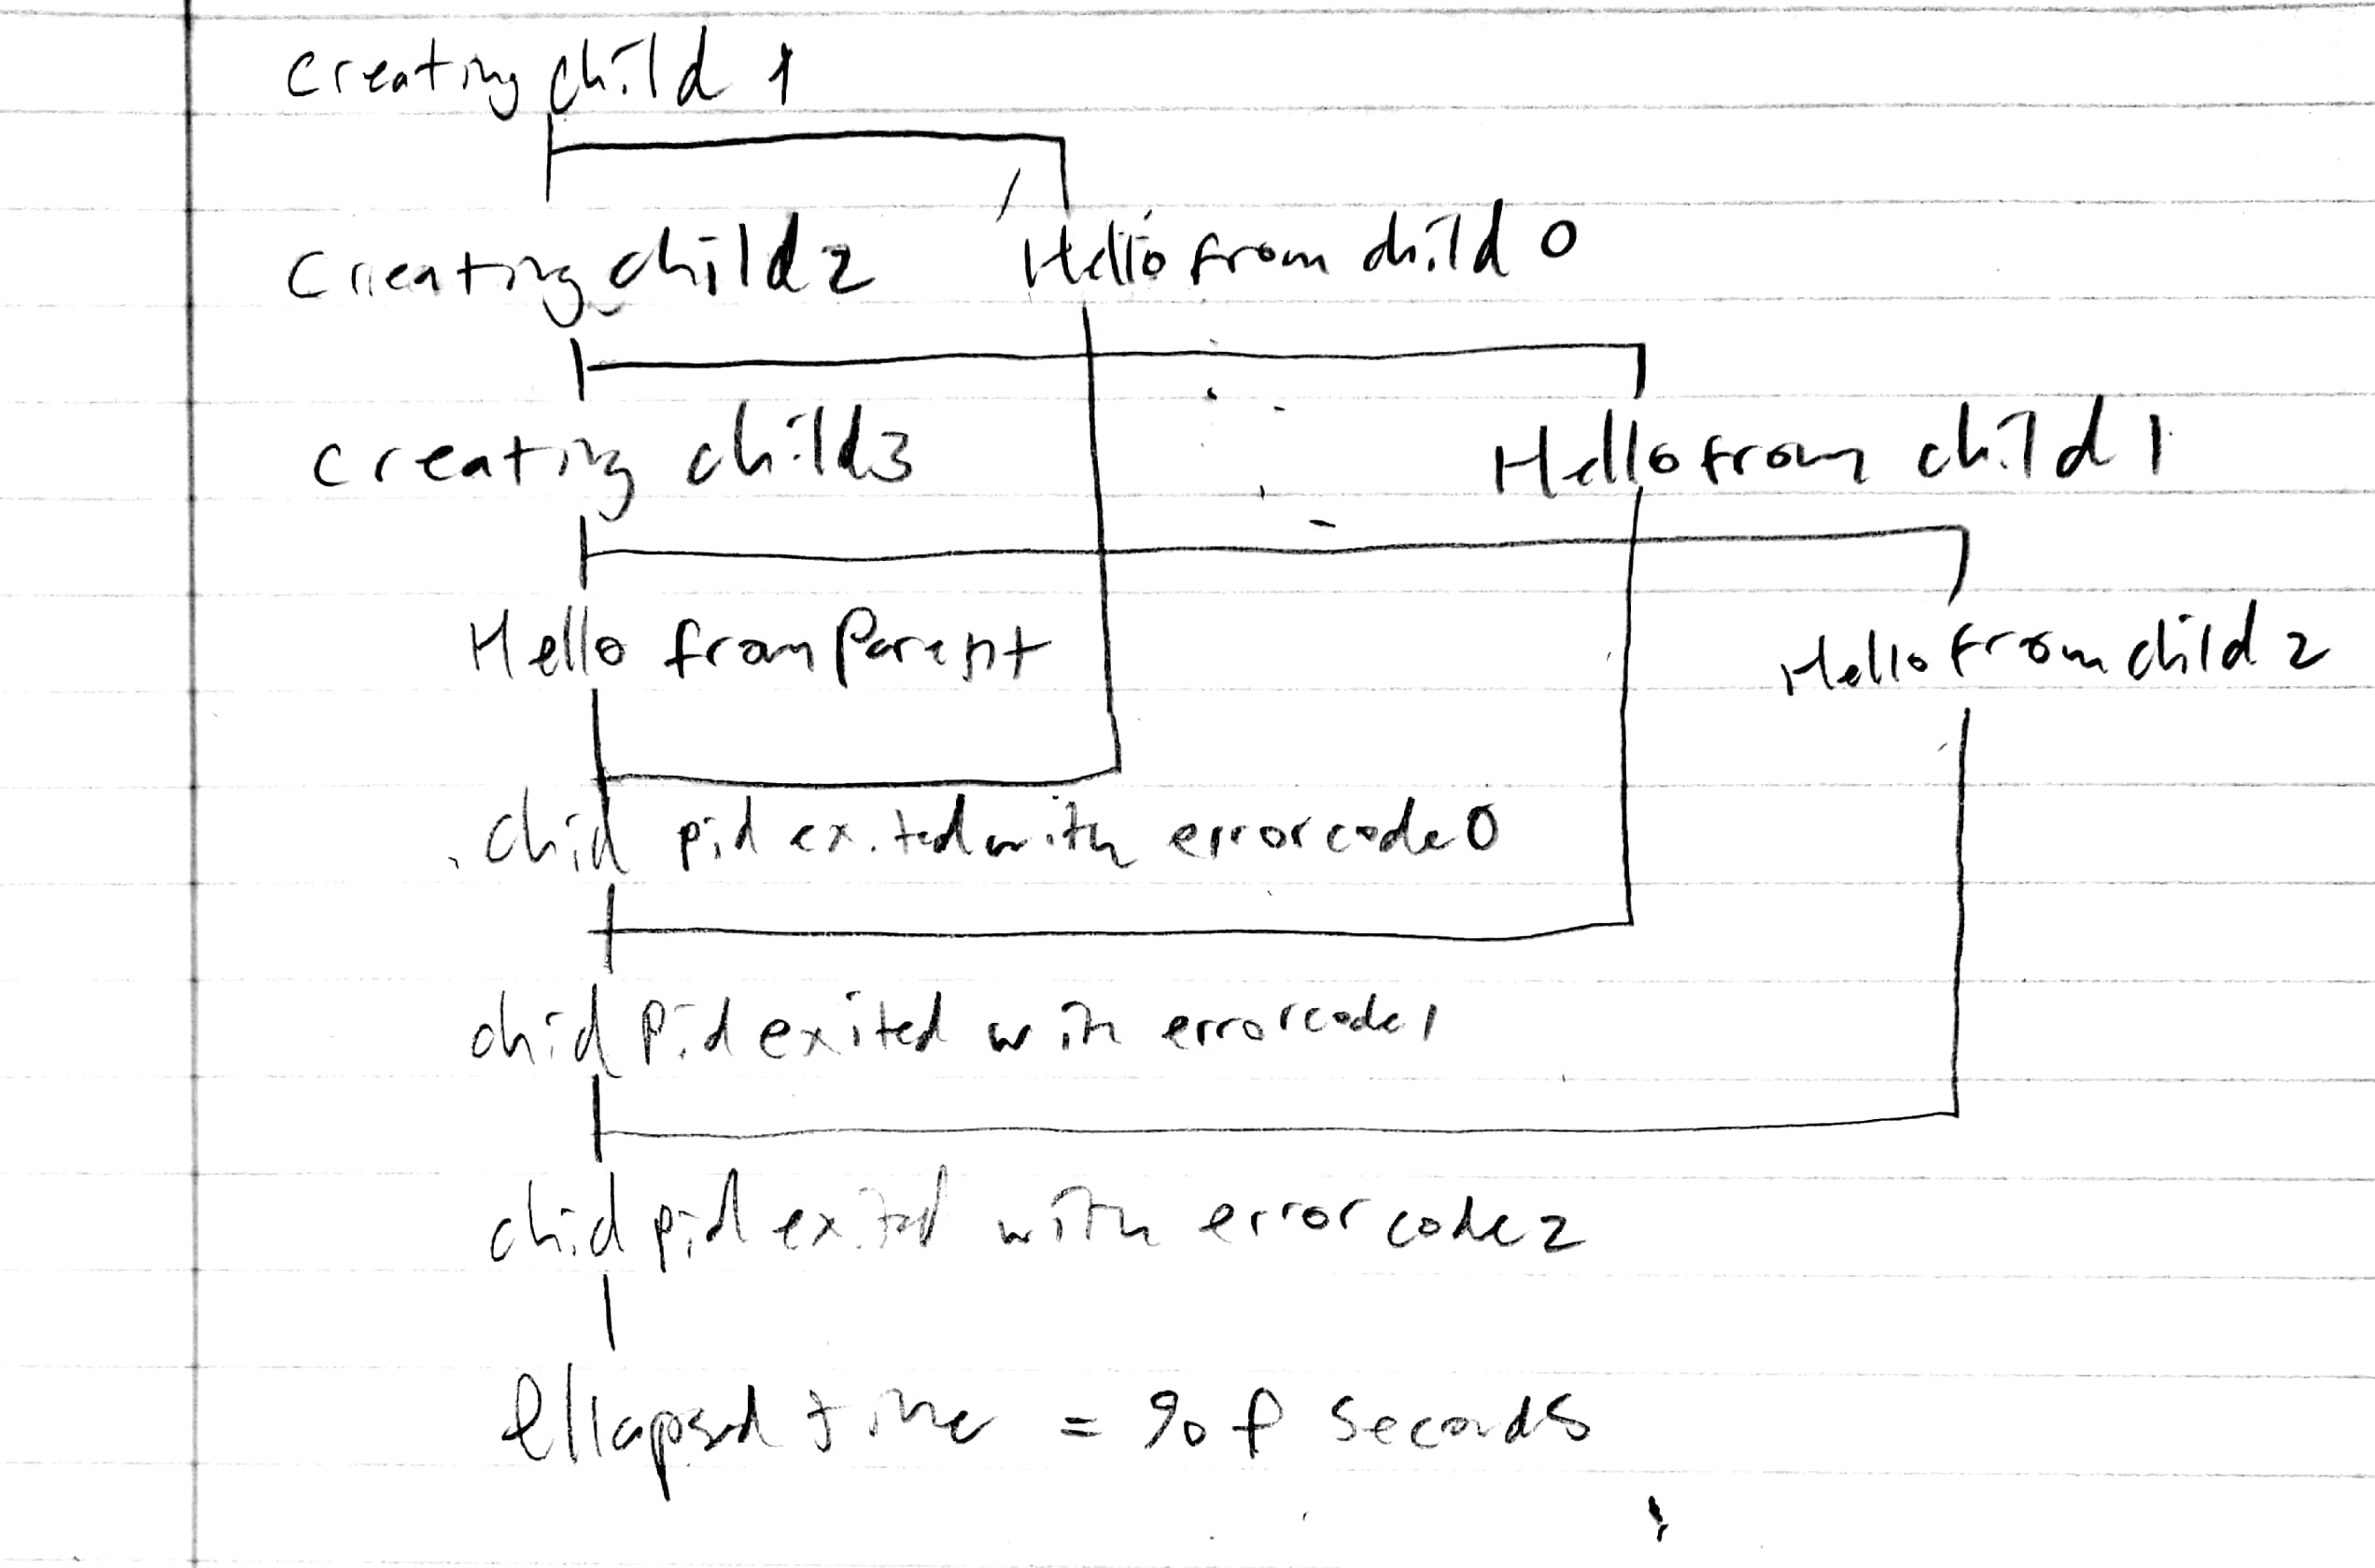 creating child 1
creating child 2 Hello from child 0
creating child 3 Hello from child 1
Hello from Parent Hello from child 2
chid pid exited with error code 0
chid Pid exited with error code 1
chid pid exited with error code 2
Ellapsed time = %f seconds